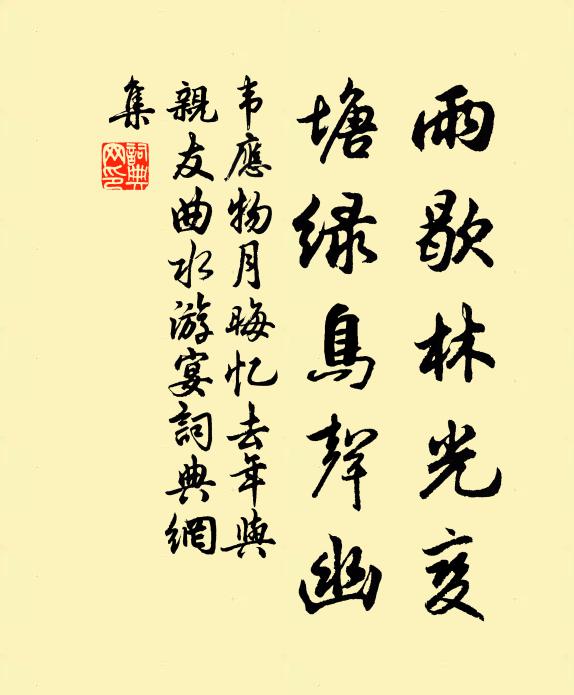 雨歇林光变
塘绿鳥聲幽
韦應物月晦忆去年與
親友曲水游宴詞典網
集
詞典网印